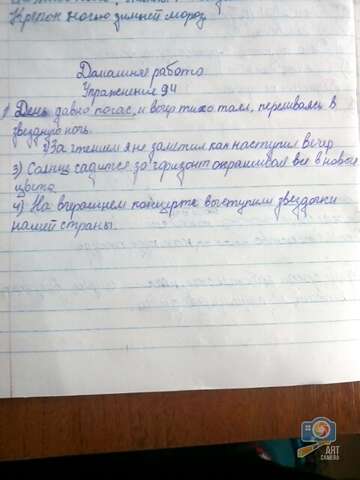 Крепок ночью зимней мороз
Домашняя работа.
Упражнение 94
1) День давно погас, и вечер тихо таял, переливаясь в
звездную ночь.
2) За чтением я не заметил как наступил вечер
3) Солнце садится за горизонт окрашивая все в новые
цвета.
4) На вчерашнем концерте выступили звездочки
нашей страны.
ART
CAMERA